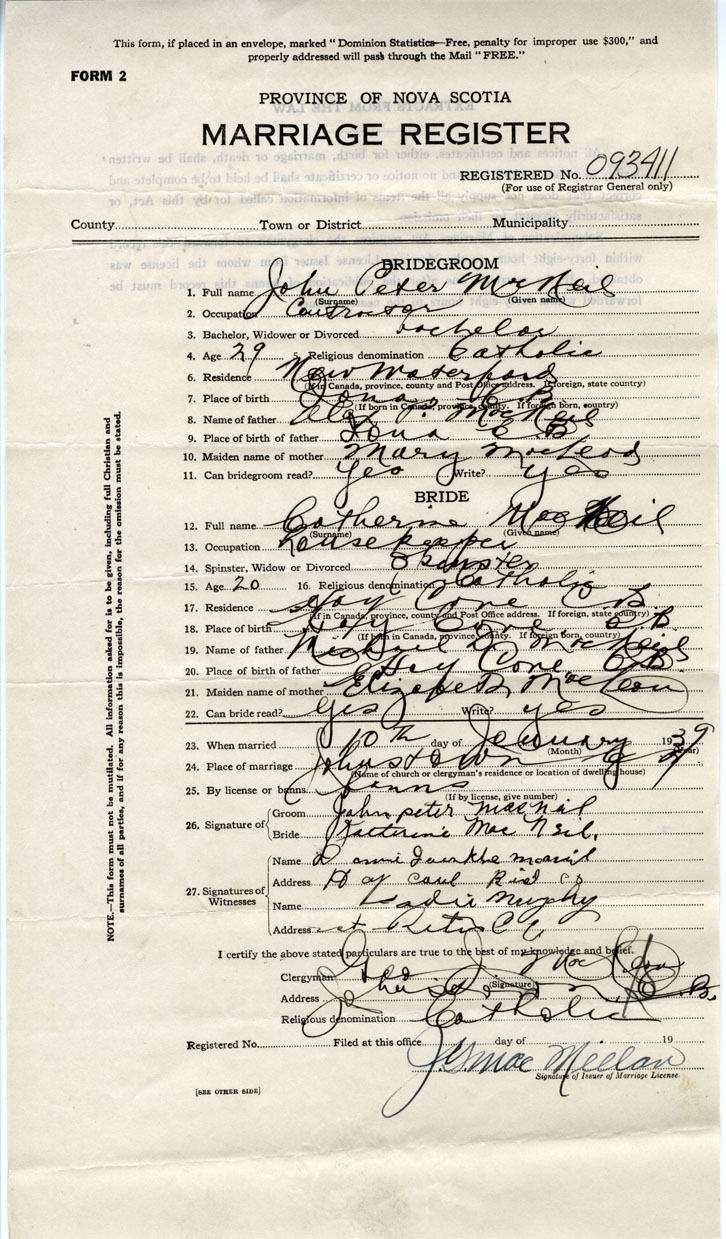 This form, if placed in an envelope, marked "Dominion Statistics—Free, penalty for improper use $300," and
properly addressed will pass through the Mail "FREE."
FORM 2
PROVINCE OF NOVA SCOTIA
MARRIAGE REGISTER
REGISTERED No. 093411
(For use of Registrar General only)
County Town or District Municipality
BRIDEGROOM
1. Full name John Peter MacNeil
(Surname) (Given name)
2. Occupation Contractor
3. Bachelor, Widower or Divorced bachelor
4. Age 29 5. Religious denomination Catholic
6. Residence New Waterford
(If in Canada, province, county and Post Office address. If foreign, state country)
7. Place of birth Iona C B
(If born in Canada, province, county. If foreign born, country)
8. Name of father MacNeil
9. Place of birth of father Iona C B
10. Maiden name of mother Mary MacLeod
11. Can bridegroom read? Yes Write? yes
BRIDE
12. Full name Catherine MacNeil
(Surname) (Given name)
13. Occupation housekeeper
14. Spinster, Widow or Divorced Spinster
15. Age 20 16. Religious denomination Catholic
17. Residence Hay Cove C B
(If in Canada, province, county and Post Office address. If foreign, state country)
18. Place of birth Hay Cove C B
(If born in Canada, province, county. If foreign born, country)
19. Name of father Michael D MacNeil
20. Place of birth of father Hay Cove C B
21. Maiden name of mother Elizabeth
22. Can bride read? Yes Write? yes
23. When married 10th day of January 1939
(Month) (Year)
24. Place of marriage Johnstown
(Name of church or clergyman's residence or location of dwelling house)
25. By license or banns banns
(If by license, give number)
26. Signature of Groom John peter MacNeil
Bride Katherine MacNeil.
27. Signatures of Witnesses
Name
Address Rd
Name Sadie Murphy
Address St Peters
I certify the above stated particulars are true to the best of my knowledge and belief.
Clergyman
(Signature)
Address C.B.
Religious denomination Catholic
Registered No. Filed at this office day of 19
Signature of Issuer of Marriage License.
[SEE OTHER SIDE]
NOTE.—This form must not be mutilated. All information asked for is to be given, including full Christian and
surnames of all parties, and if for any reason this is impossible, the reason for the omission must be stated.